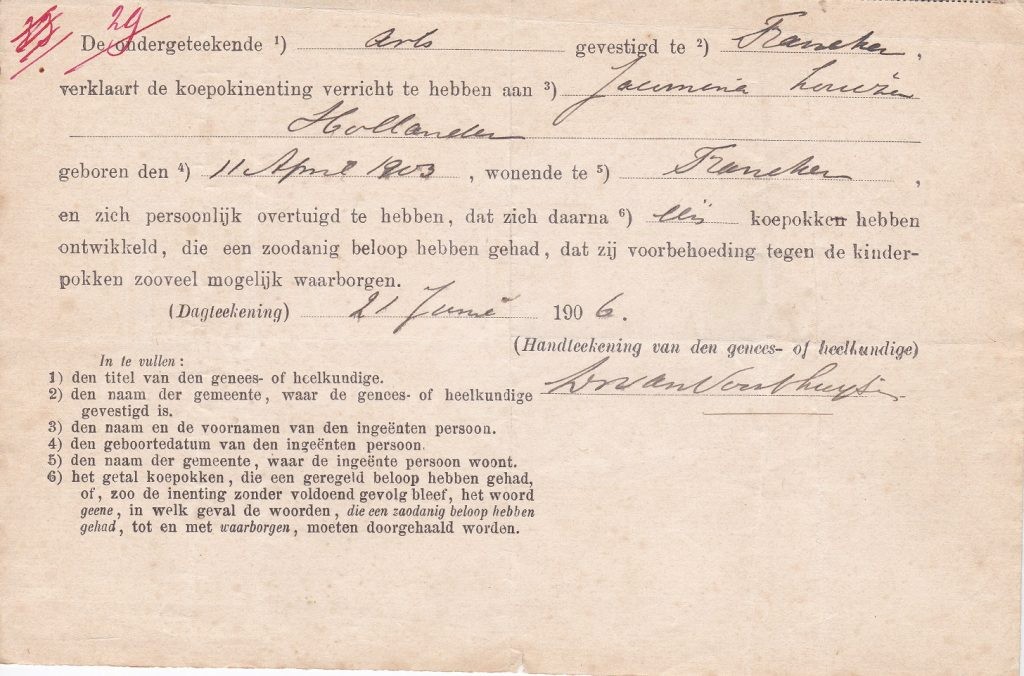 29
De ondergeteekende 1) Arts gevestigd te 2) Franeker,
verklaart de koepokinenting verricht te hebben aan 3) Jacomina Louize
Hollander
geboren den 4) 11 April 1903, wonende te 5) Franeker,
en zich persoonlijk overtuigd te hebben, dat zich daarna 6) één koepokken hebben
ontwikkeld, die een zoodanig beloop hebben gehad, dat zij voorbehoeding tegen de kinder-
pokken zooveel mogelijk waarborgen.
(Dagteekening) 21 Juni 1906.
(Handteekening van den genees- of heelkundige)
In te vullen:
1) den titel van den genees- of heelkundige.
2) den naam der gemeente, waar de genees- of heelkundige
gevestigd is.
3) den naam en de voornamen van den ingeënten persoon.
4) den geboortedatum van den ingeënten persoon.
5) den naam der gemeente, waar de ingeënte persoon woont.
6) het getal koepokken, die een geregeld beloop hebben gehad,
of, zoo de inenting zonder voldoend gevolg bleef, het woord
geene, in welk geval de woorden, die een zaodanig beloop hebben
gehad, tot en met waarborgen, moeten doorgehaald worden.